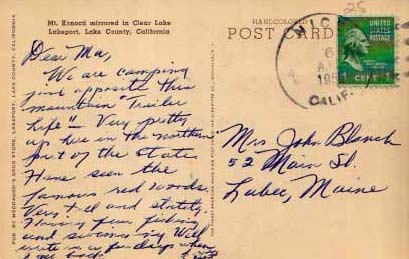 Mt. Konocti mirrored in Clear Lake
Lakeport, Lake County, California
HANDCOLORED
POST CARD
25
CHICO
CALIF.
UNITED STATES
POSTAGE
1 CENT 1
Dear Ma,
We are camping
just opposite this
mountain "Trailer
Life" - Very pretty
up here in the northern
part of the State
Have seen the
famous red woods.
Very tall and stately.
Having fun fishing
and swimming Will
write in a few days when
back
Mrs John Blanch
52 Main St.
Lubec, Maine